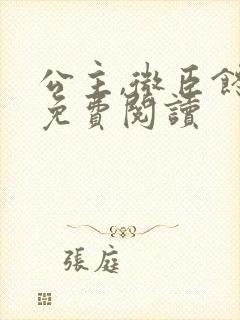 公主,微臣
免費閱讀
張庭